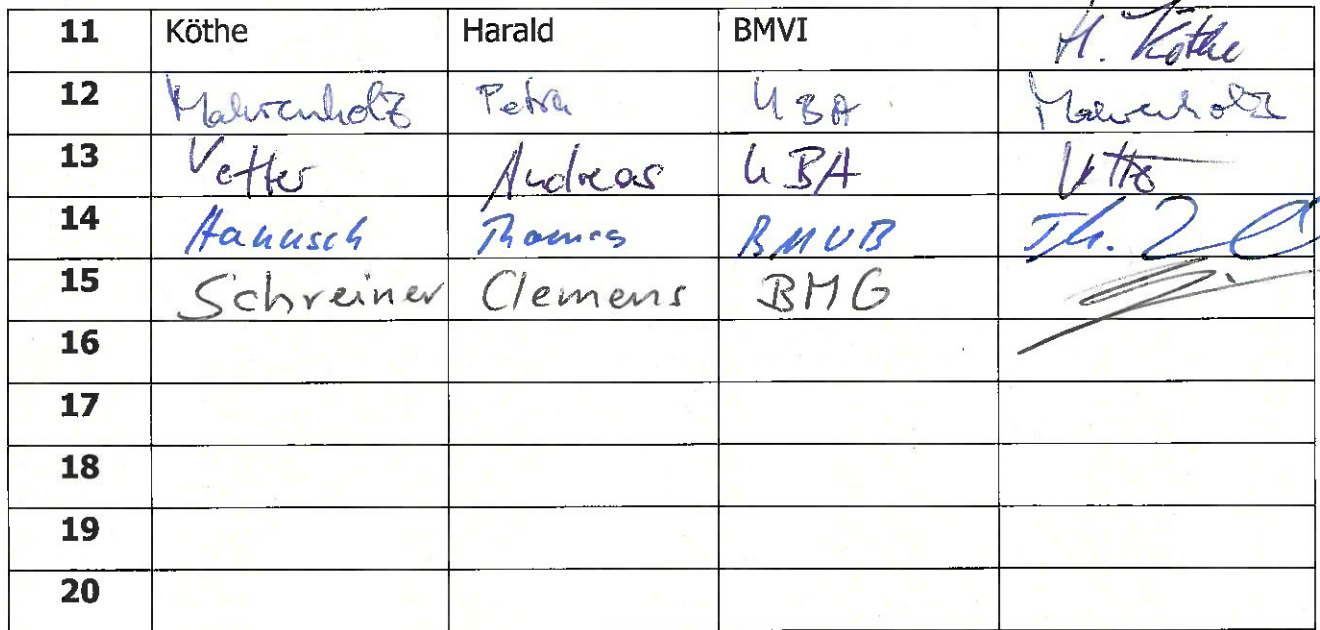 11 Köthe Harald BMVI H. Köthe
12 Mahrenholz Petra UBA Mahrenholz
13 Vetter Andreas UBA Vetter
14 Hanusch Thomas BMUB Th.
15 Schreiner Clemens BMG
16
17
18
19
20